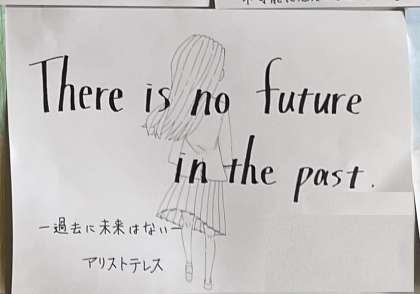 There is no future
in the past.
—過去に未来はない—
アリストテレス